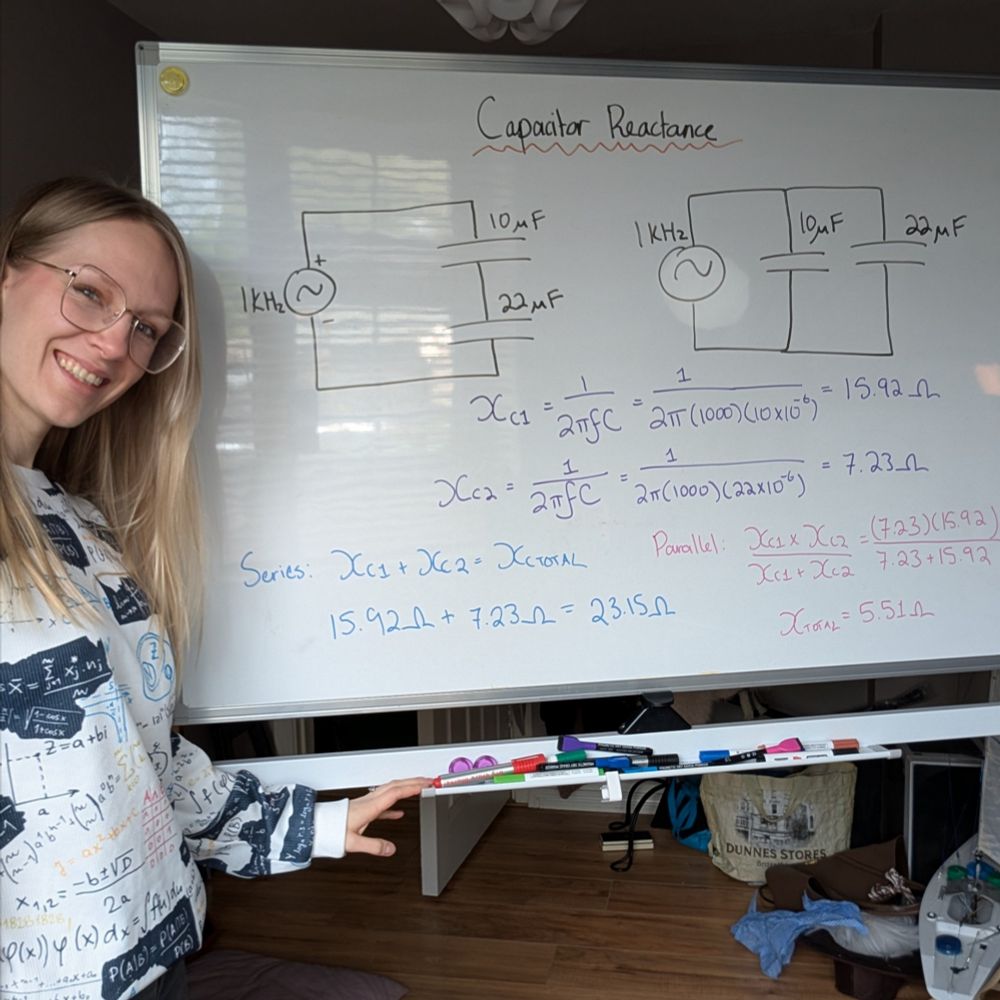 Capacitor Reactance
10μF
22μF
1KHz
+
~
-
1KHz
~
10μF
22μF
Xc1 = 1/2πfC = 1/2π(1000)(10x10⁻⁶) = 15.92Ω
Xc2 = 1/2πfC = 1/2π(1000)(22x10⁻⁶) = 7.23Ω
Series: Xc1 + Xc2 = XcTOTAL
15.92Ω + 7.23Ω = 23.15Ω
Parallel: Xc1 x Xc2/Xc1 + Xc2 = (7.23)(15.92)/7.23+15.92
XTOTAL = 5.51Ω
Z=a+bi
a
-b±√D
x₁,₂=
2a
φ(x))ψ(x)dx=
P(A|B)=
DUNNES STORES